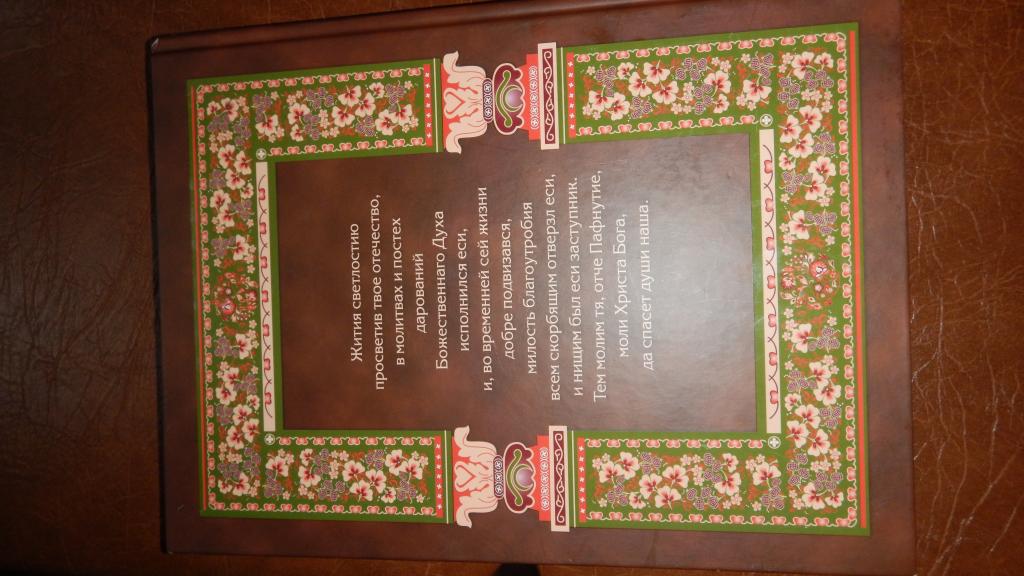 Жития светлостию
просветив твое отечество,
в молитвах и постех
дарований
Божественнаго Духа
исполнился еси,
и, во временней сей жизни
добре подвизався,
милость благоутробия
всем скорбящим отверзл еси,
и нищим был еси заступник.
Тем молим тя, отче Пафнутие,
моли Христа Бога,
да спасет души наша.